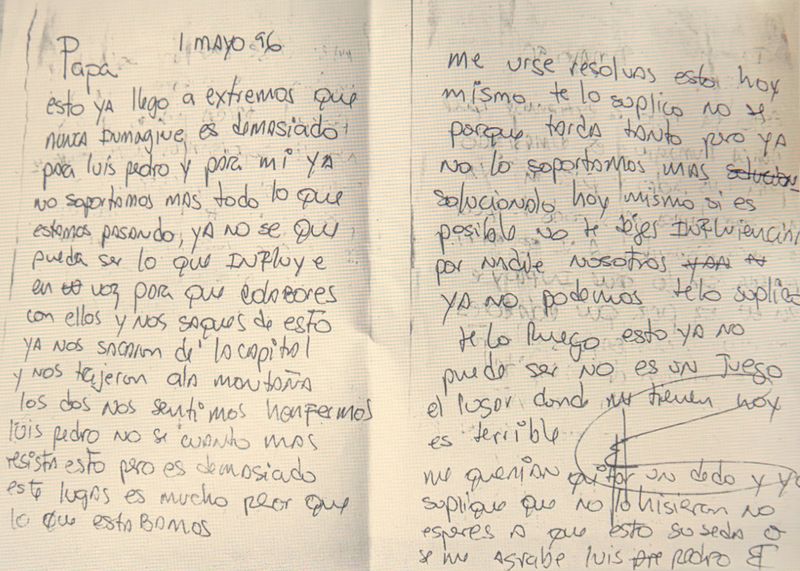 1 MAYO 96
Papa
esto ya llego a extremos que
nunca Inmagive es demasiado
para luis pedro y para mi ya
no soportamos mas todo lo que
estamos pasando, ya no se que
pueda ser lo que Influye
en voz para que colabores
con ellos y nos saques de esto
ya nos sacaron de la capital
y nos trajeron ala montaña
los dos nos sentimos henfermos
luis pedro no se cuanto mas
resista esto pero es demasiado
este lugar es mucho peor que
lo que estabamos
me urse resolvas esto hoy
mismo te lo suplico no se
porque tarda tanto pero ya
no lo soportamos mas solucion
solucionalo hoy mismo si es
posible no te dejes Influienciar
por nadie nosotros
ya no podemos telo suplico
te lo Ruego esto ya no
puede ser no es un Juego
el lugar donde me tienen hoy
es terrible
me querian quitar un dedo y yo
suplique que no lo hisieron no
esperes a que esto suseda o
se me agrabe luis pedro